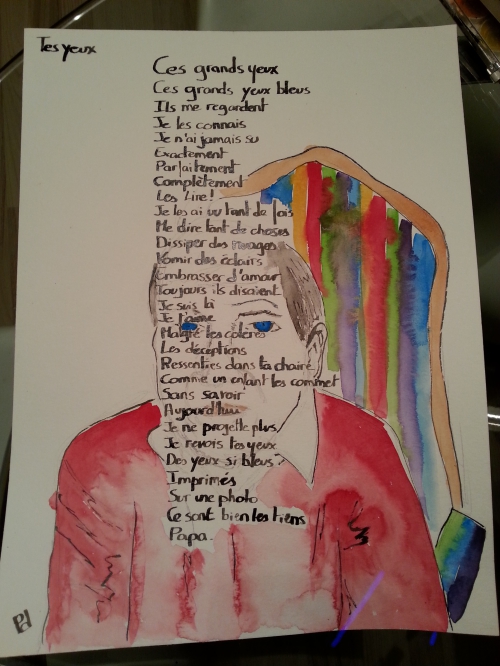 Tes yeux
Ces grands yeux
Ces grands yeux bleus
Ils me regardent
Je les connais
Je n'ai jamais su
Exactement
Parfaitement
Complètement
Les Lire!
Je les ai vu tant de fois
Me dire tant de choses
Dissiper des nuages
Vomir des éclairs
Embrasser d'amour
Toujours ils disaient
Je suis là
Je t'aime
Malgré les colères
Les déceptions
Ressenties dans ta chaire
Comme un enfant les commet
Sans savoir
Aujourd'hui
Je ne projette plus
Je revois tes yeux
Des yeux si bleus?
Imprimés
Sur une photo
Ce sont bien les tiens
Papa.